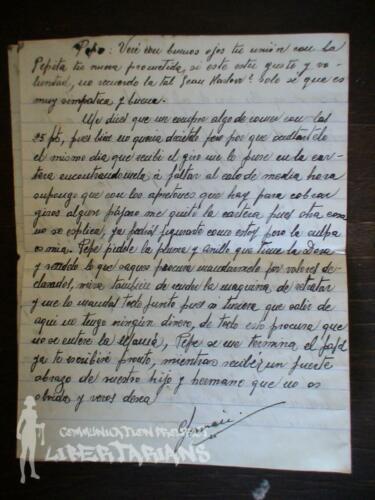 Pepe: Veré con buenos ojos tu unión con la
Pepita tu nueva prometida, si este es tu gusto y vo-
luntad, no recuerdo la tal Jean Harlow: solo si que es
muy simpatica y buena.
Me dices que me compre algo de comer con las
25 pts, pues bien no queria decirtelo pero por que ocultartelo
el mismo dia que recibi el giro me lo puse en la car-
tera encontrandomela a faltar al cabo de media hora
supongo que con los apretones que hay para cobrar
giros algun pájaro me quitó la cartera pues otra cosa
no se explica, ya podeis figuraros como estoy pero la culpa
es mia. Pepe pidele la pluma y anillo que tiene la Rosa
y vendelo lo que saques procura mandarmelo por valores de-
clarados, mira tambien de vender la maquina de retratar
y me lo mandas todo junto pues si tuviera que salir de
aqui no tengo ningún dinero, de todo esto procura que
no se entere la Mamá, Pepe se me termina el papel
ya te escribiré pronto, mientras recibir un fuerte
abrazo de vuestro hijo y hermano que no os
olvida y veros desea
COMMUNICATION PROJECT
LIBERTARIANS